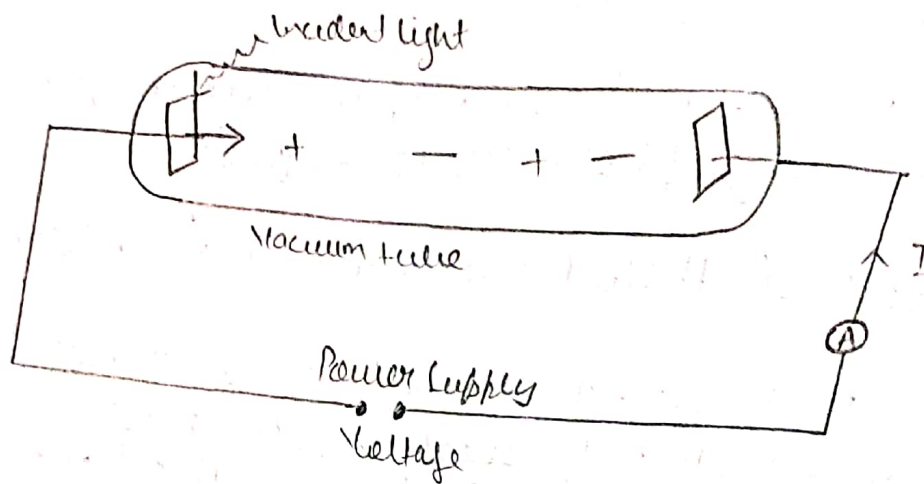 Incident light
+ − + −
Vacuum tube
I
A
Power Supply
Voltage